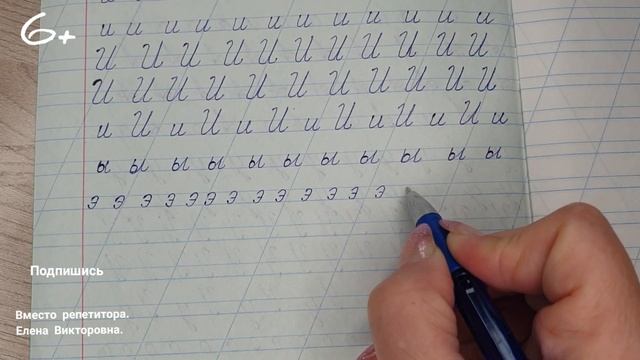 6+
и и и и и и и и и и и и и
И И И И И И И И И И И
И И И И И И И И И И И
и И и И и И и И и И и И и
ы ы ы ы ы ы ы ы ы ы ы
э э э э э э э э э э э э э
Подпишись
Вместо репетитора.
Елена Викторовна.